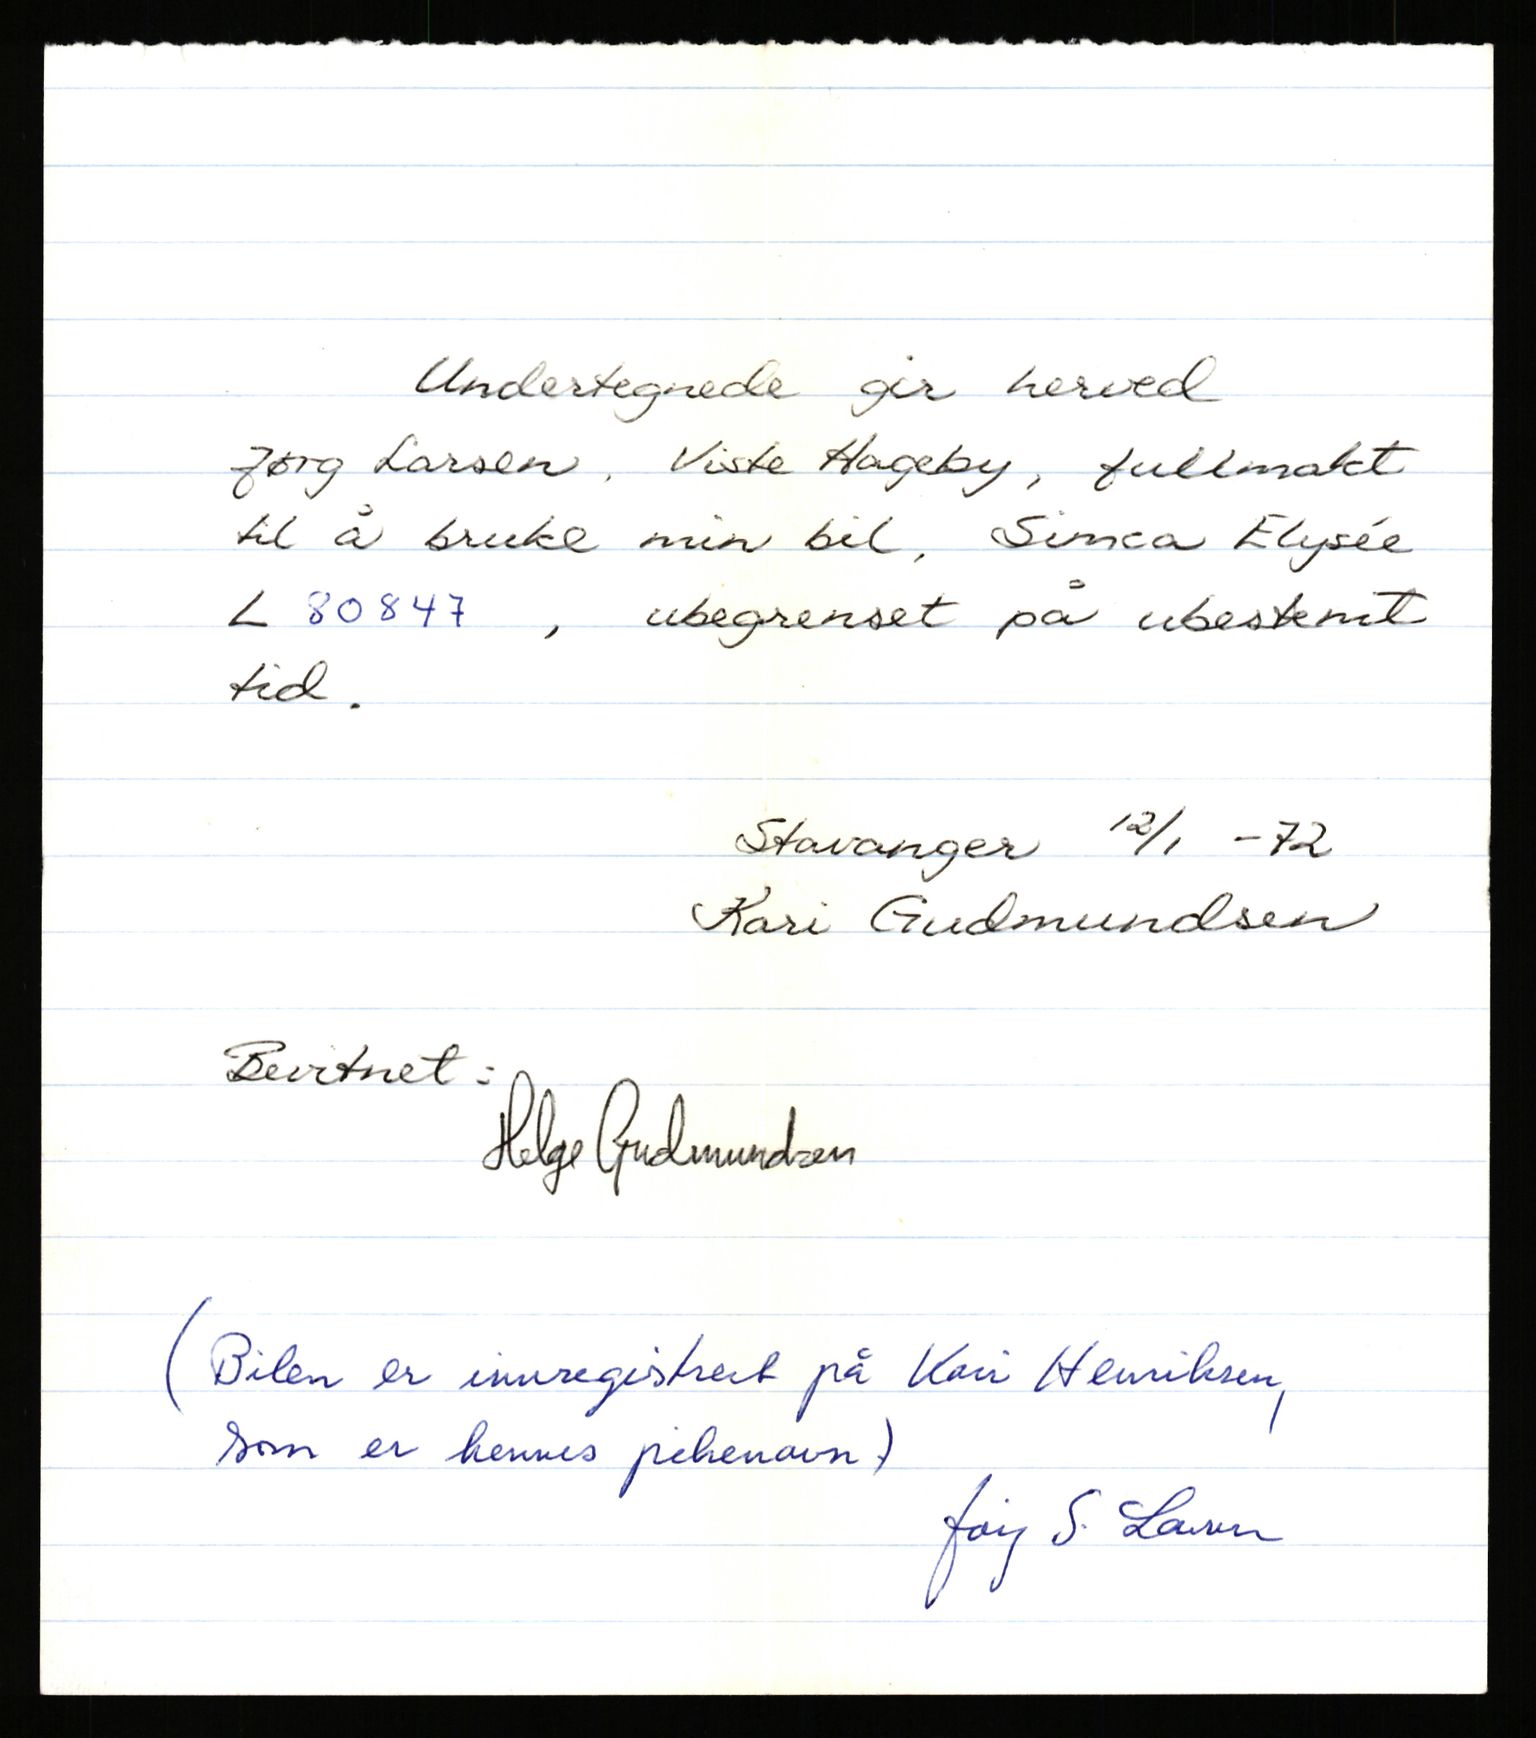 Undertegnede gir herved
Jørg Larsen, Viste Hageby, fullmakt
til å bruke min bil, Simca Elysée
L 80847, ubegrenset på ubestemt
tid.
Stavanger 12/1 -72
Kari Gudmundsen
Bevitnet:
Helge Gudmundsen
(Bilen er innregistrert på Kari Henriksen,
som er hennes pikenavn)
Jørg S. Larsen